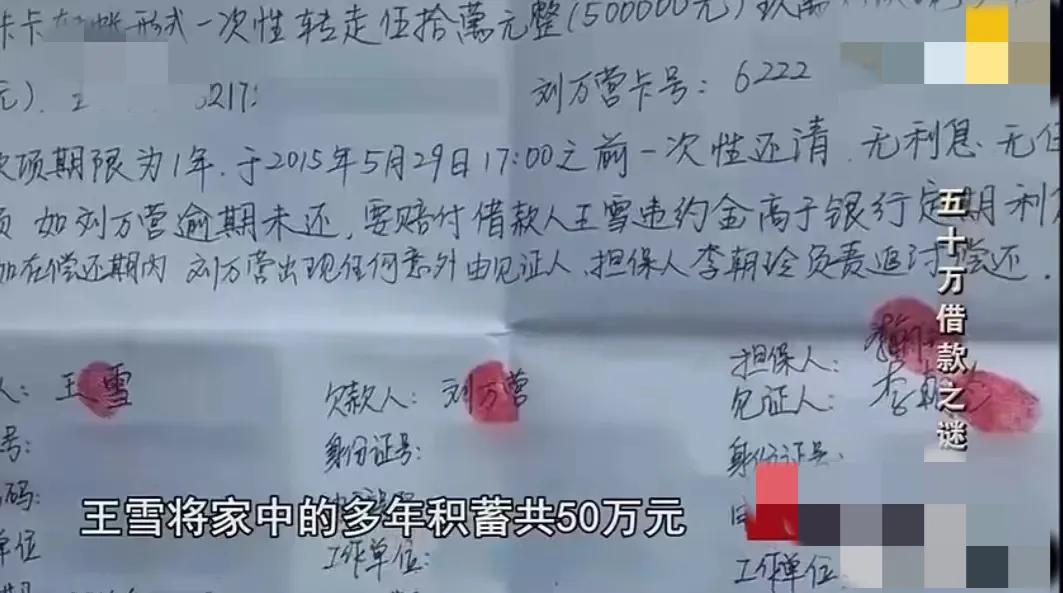 形式一次性转走伍拾萬元整(500000元)
元).
217:
刘万营卡号: 6222
款项期限为1年.于2015年5月29日17:00之前一次性还清.无利息.无
如刘万营逾期未还,要赔付借款人王雪违约金高于银行定期利
如在偿还期内 刘万营出现任何意外由见证人.担保人李朝玲负责追讨偿还.
人: 王雪
欠款人: 刘万营
担保人:
见证人: 李朝
号:
身份证号:
身份证号:
码:
单位
工作单位:
工作单位:
王雪将家中的多年积蓄共50万元
五十万借款之谜